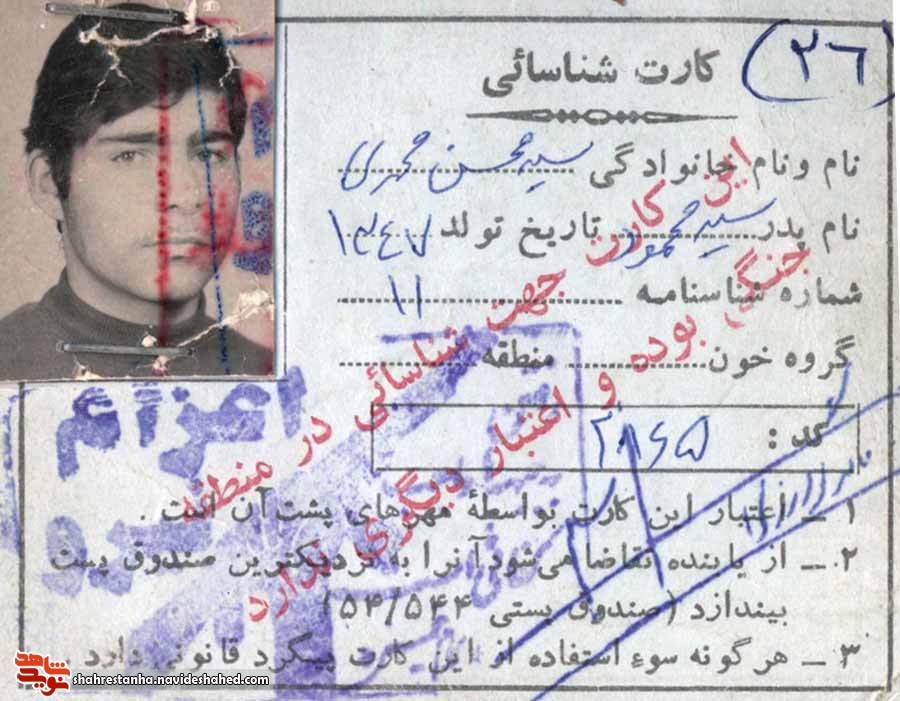 (۲۶)
کارت شناسائی
نام و نام خانوادگی سید محسن مهری
نام پدر سید محمود تاریخ تولد ۱۳۴۷
شماره شناسنامه ۱۱
گروه خون منطقه
کد : ۲۸۶۵
۱ ـ اعتبار این کارت بواسطهٔ مهرهای پشت آن است .
۲ ـ از یابنده تقاضا می‌شود آنرا به نزدیکترین صندوق پست
بیندازد (صندوق پستی ۵۴/۵۴۴)
۳ ـ هر گونه سوء استفاده از این کارت پیگرد قانونی دارد
این کارت جهت شناسائی در منطقه
جنگی بوده و اعتبار دیگری ندارد
اعزام
نیرو
نوید شاهد
shahrestanha.navideshahed.com